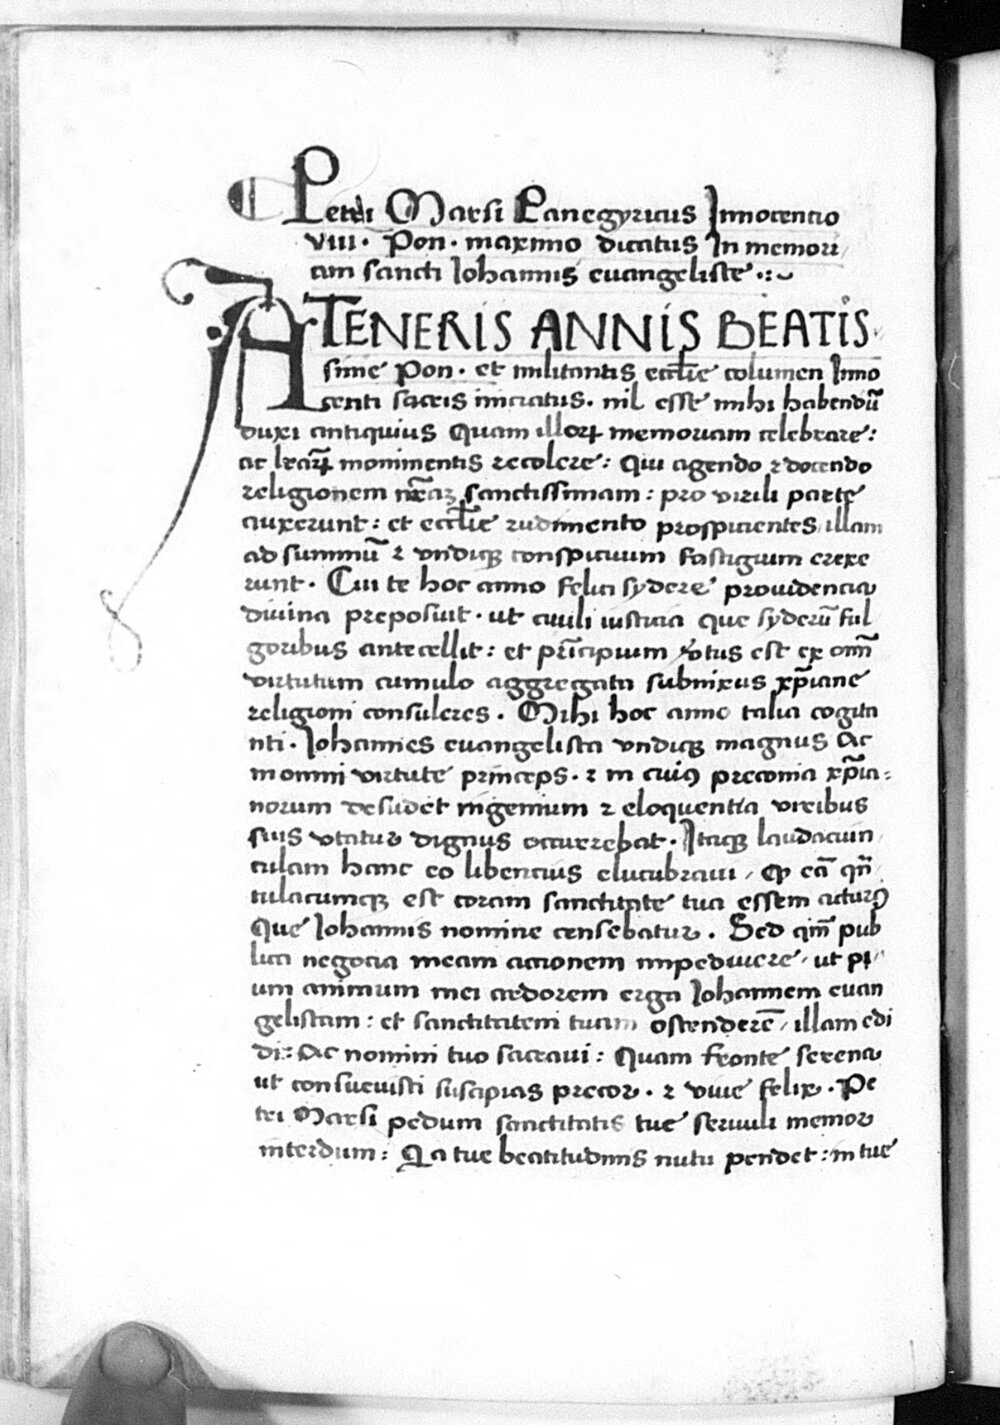 Petri Marsi Panegyricus Innocentio
viii. Pon. maximo dicatus In memori
am sancti Iohannis euangeliste.
A TENERIS ANNIS BEATIS
sime Pon. et militantis eccľie columen Inno
centi sacris iniciatus. nil esse mihi habendũ
duxi antiquius Quam illoꝝ memoriam celebrare:
ac learꝝ monimentis recolere: Qui agendo ⁊ docendo
religionem nr̃aꝫ sanctissimam: pro virili parte
auxerunt: et eccľie rudimento prospicientes illam
ad summũ ⁊ vndiqꝫ conspicuum fastigium erexe
runt. Cui te hoc anno felici sydere prouidencia
diuina preposuit. ut ciuili iusticia que syderũ ful
goribus antecellit: et pr̃cipium ṽtus est ex om̃
virtutum cumulo aggregata subnixus xp̃iane
religioni consuleres. Mihi hoc anno talia cogita
nti. Iohannes euangelista vndiqꝫ magnus Ac
in omni virtute princeps. ⁊ in cuiꝰ preconia xp̃ia=
norum desudet ingenium ⁊ eloquentia viribus
suis vtatur dignus occurrebat. Itaqꝫ laudaciun
culam hanc eo libencius elucubraui, ꝙ eã qñ
tulacumqꝫ est coram sanctitate tua essem acturꝰ
Que Iohannis nomine censebatur. Sed qm̃ pub
lici negocia meam accionem impediuere, ut pi
um animum mei ardorem erga Iohannem euan
gelistam: et sanctitatem tuam ostenderẽ, illam edi
di: Ac nomini tuo sacraui: Quam fronte serena
ut consueuisti suscipias precor. ⁊ viue felix. Pe
tri Marsi pedum sanctitatis tue seruuli memor
interdum: Qa tue beatitudinis nutu pendet: in tue